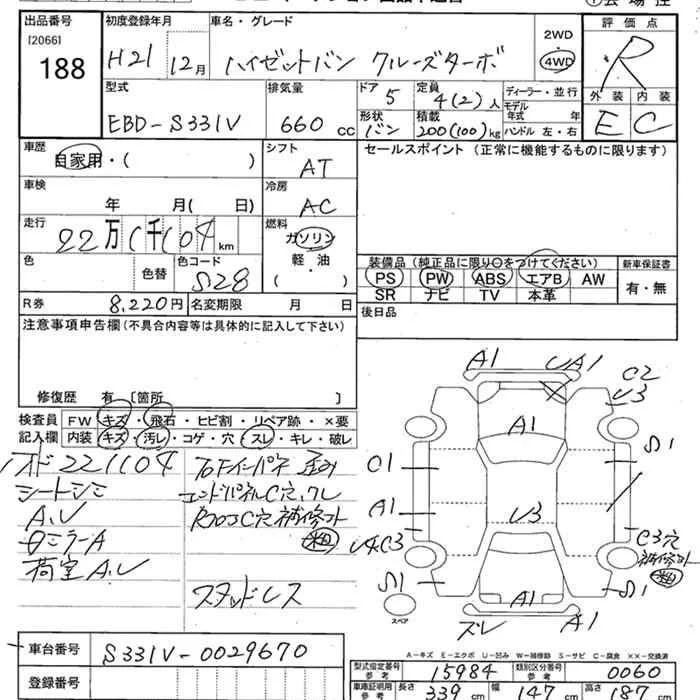 出品番号
[2066]
188
初度登録年月
H21 12月
車名・グレード
ハイゼットバン クルーズターボ
2WD
・
4WD
評価点
R
外装 内装
E C
型式
EBD-S331V
排気量
660 cc
ドア
5
形状
バン
定員
4(2)人
積載
200(100)kg
ディーラー・並行
モデル
年式 年
ハンドル 左・右
車歴
自家用・( )
シフト
AT
セールスポイント (正常に機能するものに限ります)
車検
年 月( 日)
冷房
AC
走行
22万(千)04km
燃料
ガソリン
軽・油
( )
色
色替
色コード
S28
装備品(純正品に限り○をつけてください)
PS PW ABS エアB AW
SR ナビ TV 本革
新車保証書
有・無
R券
8,220円
名変期限 月 日
後日品
注意事項申告欄(不具合内容等は具体的に記入して下さい)
修復歴 有 [箇所 ]
検査員
記入欄
FW キズ・飛石・ヒビ割・リペア跡・×要
内装 キズ・汚レ・コゲ・穴・スレ・キレ・破レ
221104
シートシミ
A,U
ロミラーA
荷室A,U
エンドパネルC穴,ワレ
C穴補修コト
粗
スタッドレス
A1
UA1
C2
U3
A1
S1
C1
A1
U3
U4,C3
C3穴
補修コト
粗
S1
A1
S1
スペア
ズレ
A1
A-キズ E-エクボ U-凹み W-補修跡 S-サビ C-腐食 ××-交換済
車台番号
S331V-0029670
登録番号
型式指定番号
参考
15984
類別区分番号
参考
0060
車庫証明用
参考
長さ
339 cm
幅
147 cm
高さ
187 cm